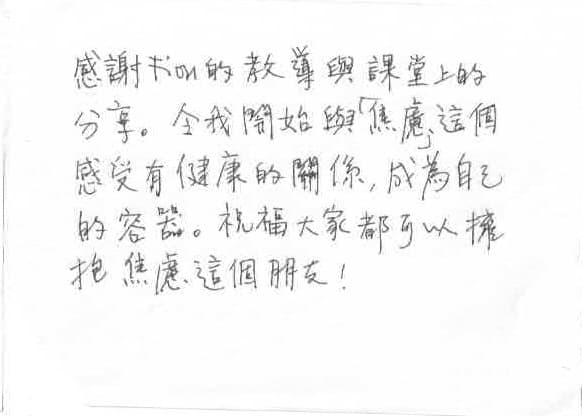 感謝 的教導與課堂上的
分享。令我開始與「焦慮」這個
感受有健康的關係,成為自己
的容器。祝福大家都可以擁
抱焦慮這個朋友!